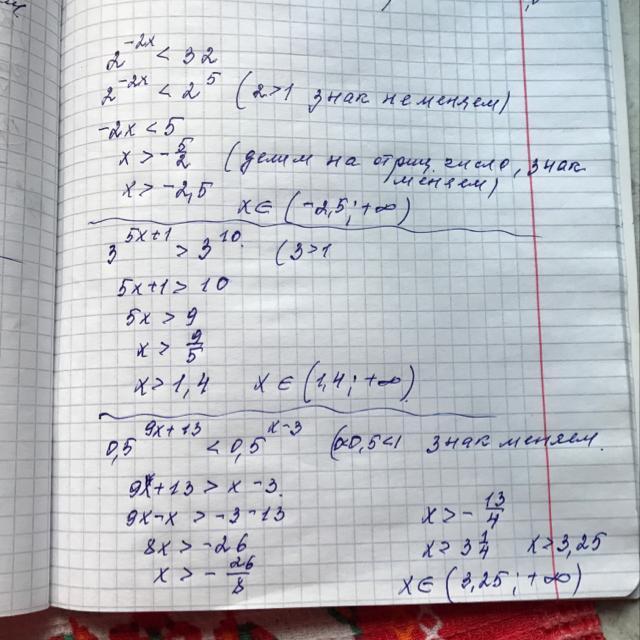 2^{-2x} < 32
2^{-2x} < 2^5 (2>1 знак не меняем)
-2x < 5
x > -5/2 (делим на отриц. число, знак меняем)
x > -2,5 x ∈ (-2,5; +∞)
3^{5x+1} > 3^{10}. (3>1
5x+1 > 10
5x > 9
x > 9/5
x > 1,4 x ∈ (1,4; +∞)
0,5^{9x+13} < 0,5^{x-3} (0,5<1 знак меняем.
9x+13 > x-3.
9x-x > -3-13
8x > -26
x > -26/8
x > -13/4
x > 3 1/4 x > 3,25
x ∈ (3,25; +∞)